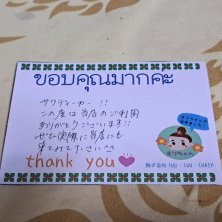 ขอบคุณมากค่ะ
サワディーカー!!
この度は当店のご利用
ありがとうございます!!
ぜひ実際に当店にも
来て下さい
thank you
株式会社 SUU・SUU・CHAIYO